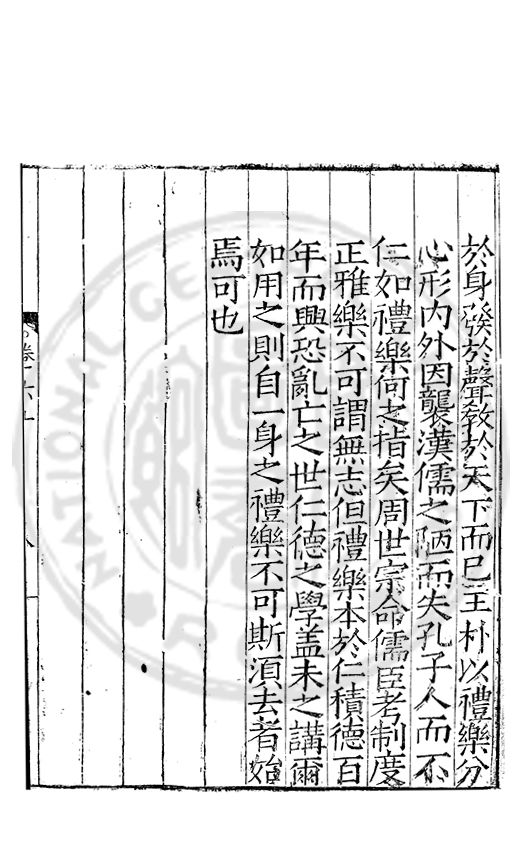 於身發於聲教於天下而已王朴以禮樂分
心形内外因襲漢儒之陋而失孔子人而不
仁如禮樂何之指矣周世宗命儒臣考制度
正雅樂不可謂無志但禮樂本於仁積德百
年而興恐亂亡之世仁德之學盖未之講爾
如用之則自一身之禮樂不可斯湏去者始
焉可也
卷一六十
八
NATIONAL CE